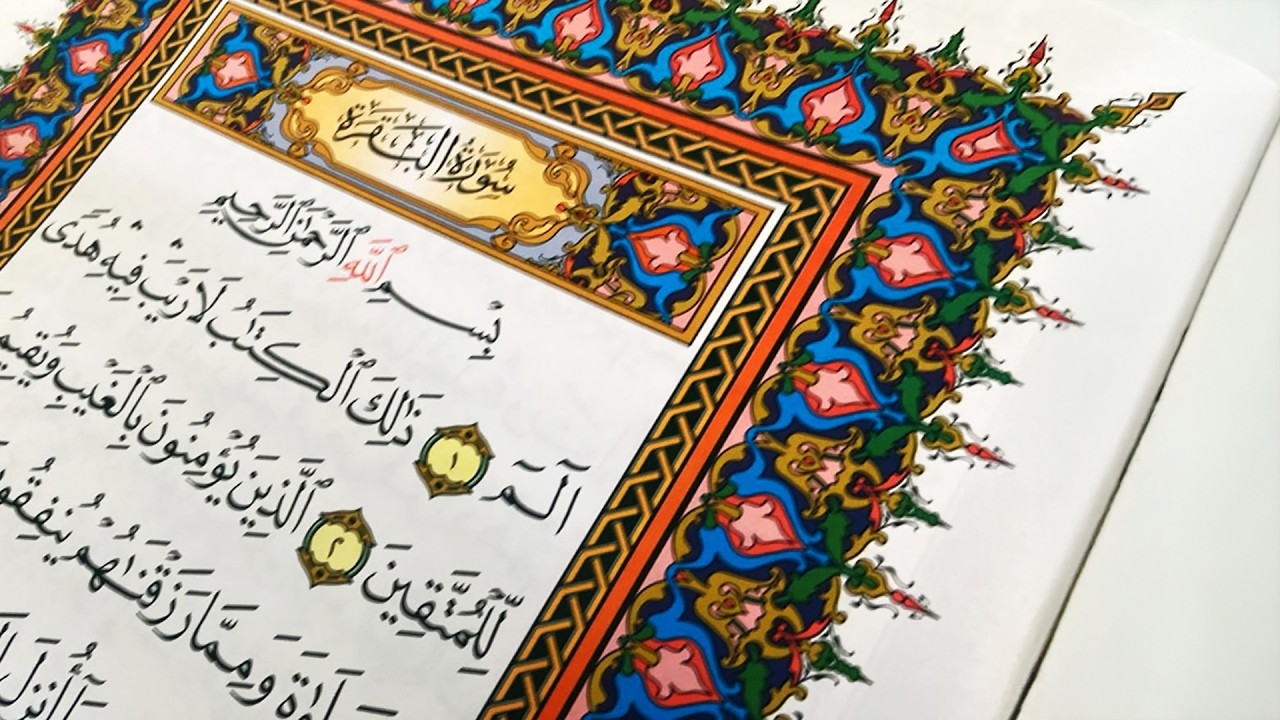 سُوْرَةُ الْبَقَرَةِ
بِسْمِ ٱللَّهِ ٱلرَّحْمَٰنِ ٱلرَّحِيمِ
الٓمٓ ١ ذَٰلِكَ ٱلْكِتَٰبُ لَا رَيْبَ فِيهِ هُدًى
لِّلْمُتَّقِينَ ٢ ٱلَّذِينَ يُؤْمِنُونَ بِٱلْغَيْبِ وَيُقِيمُ
وَمِمَّا رَزَقْنَٰهُمْ يُنفِقُو
أُنزِلَ